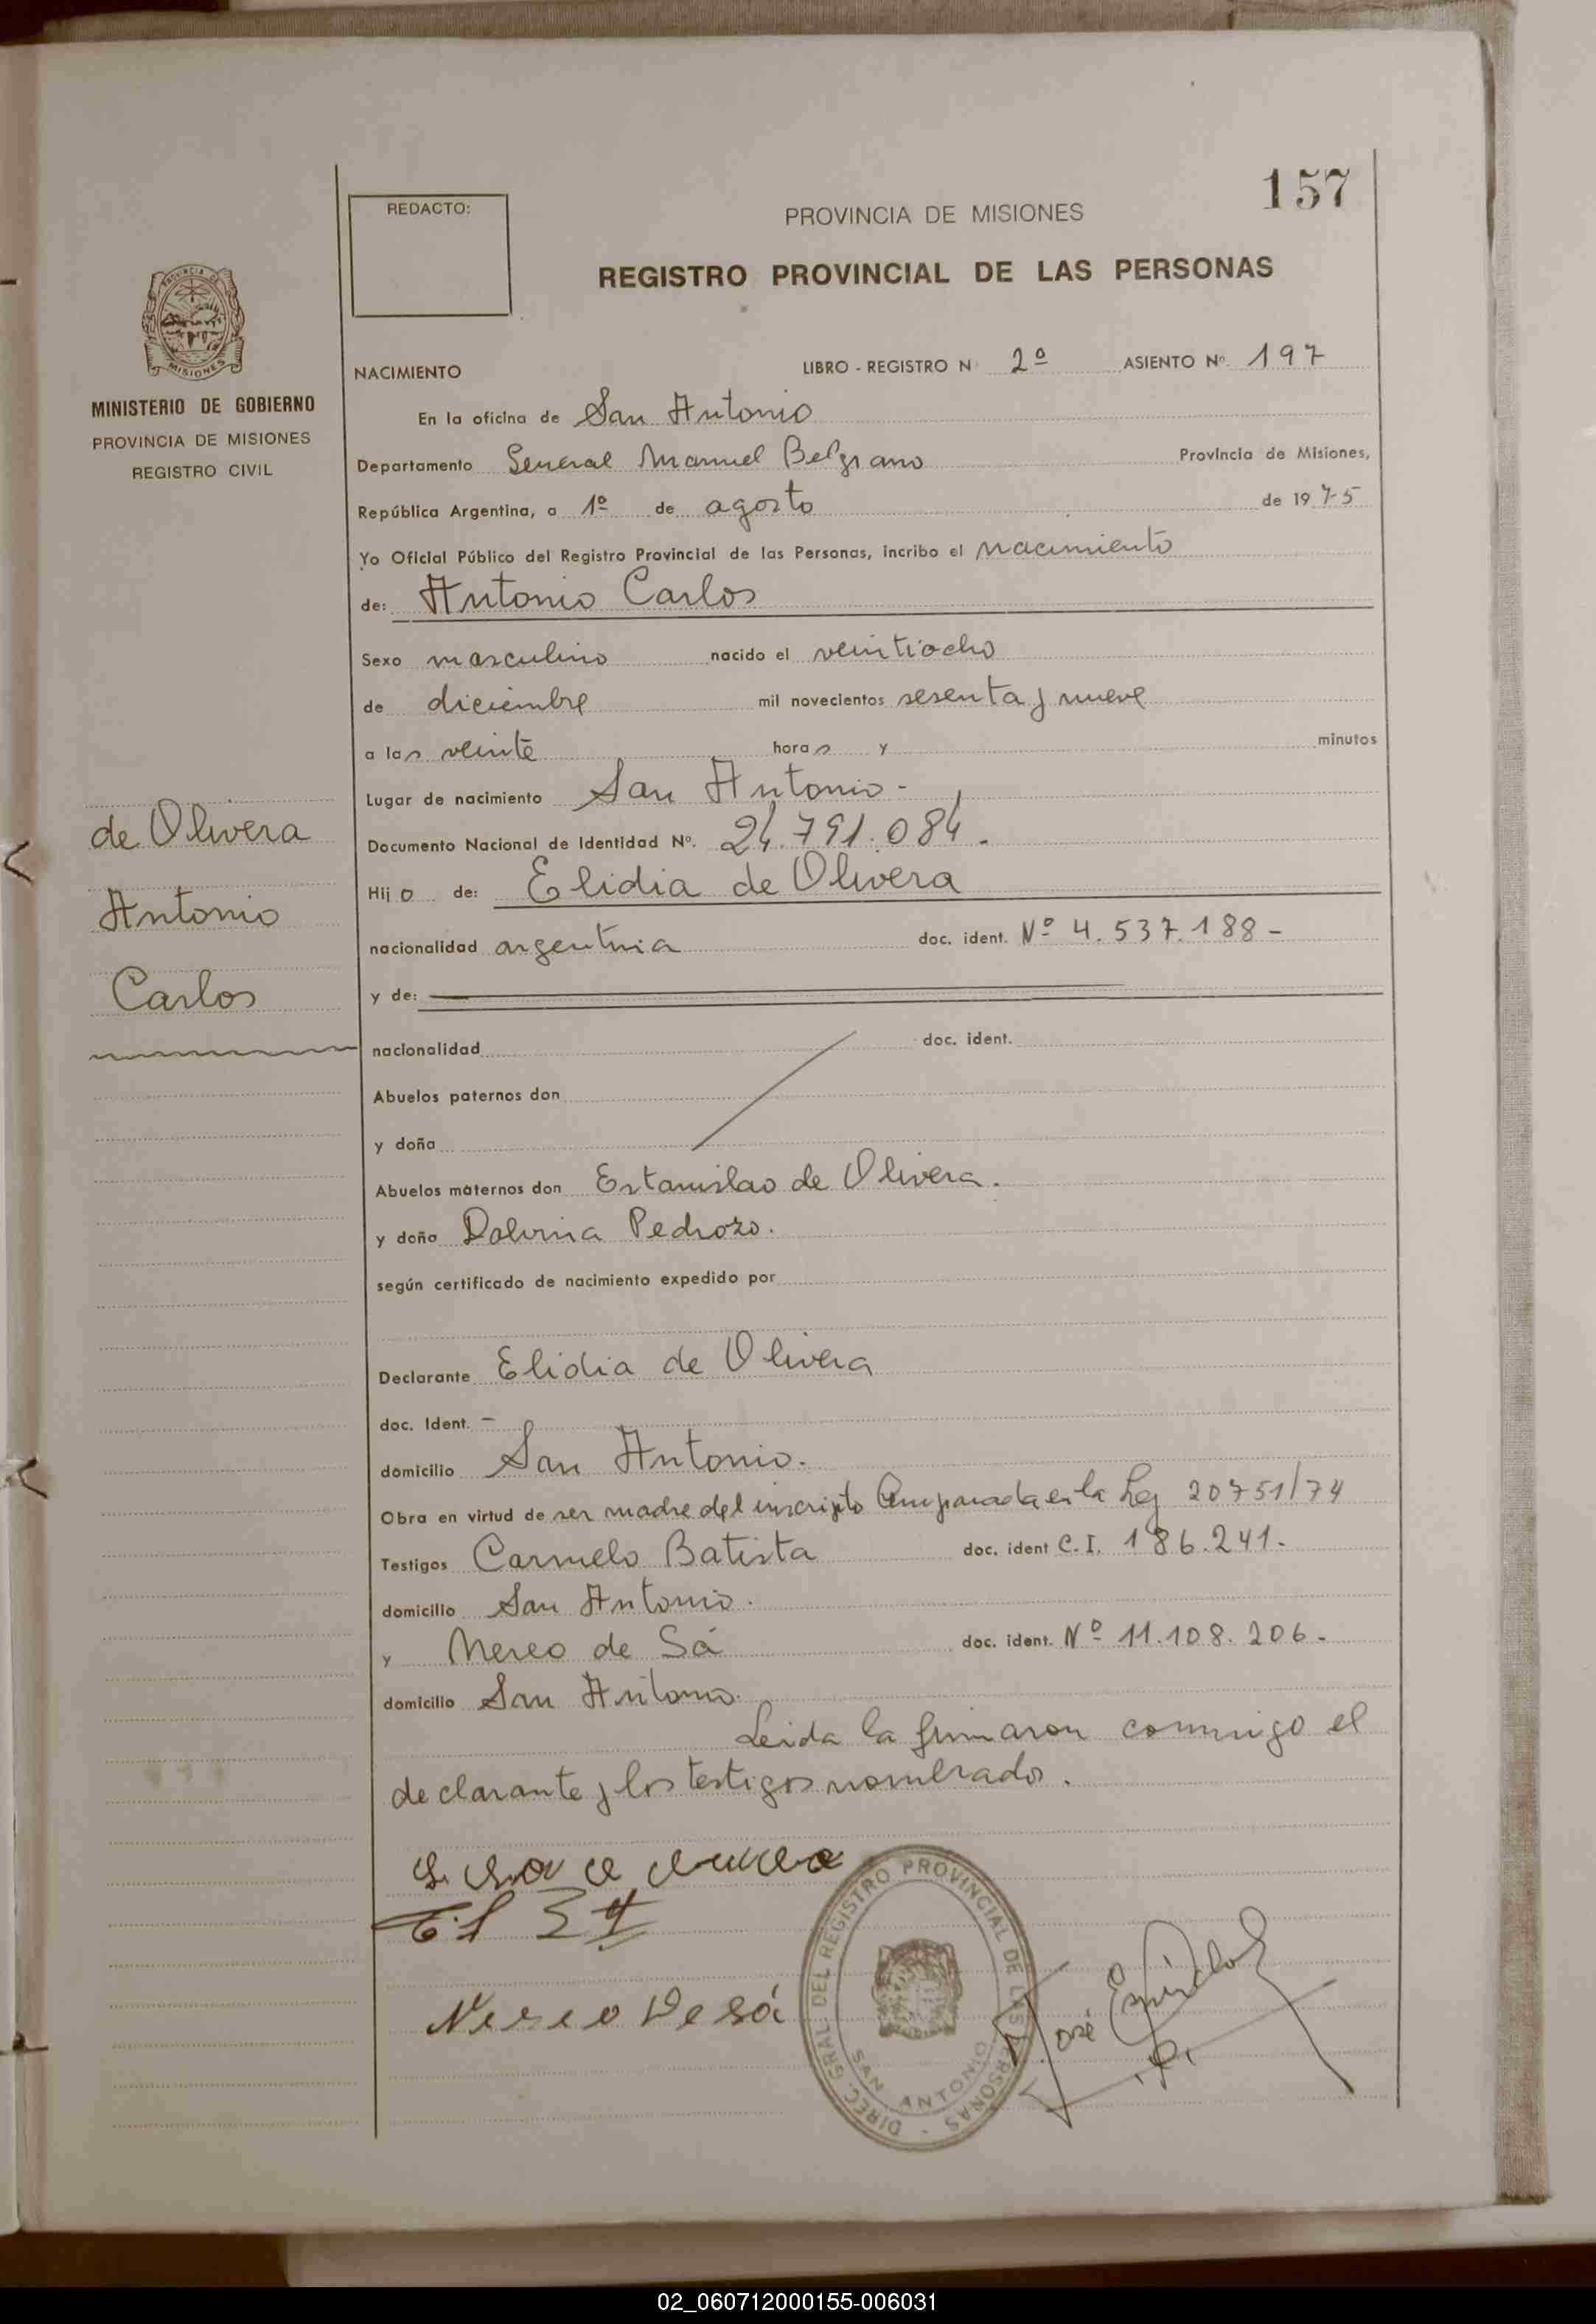 157
REDACTO:
PROVINCIA DE MISIONES
REGISTRO PROVINCIAL DE LAS PERSONAS
PROVINCIA DE
MISIONES
MINISTERIO DE GOBIERNO
PROVINCIA DE MISIONES
REGISTRO CIVIL
NACIMIENTO LIBRO - REGISTRO N 2º ASIENTO Nº. 197
En la oficina de San Antonio
Departamento General Manuel Belgrano Provincia de Misiones,
República Argentina, a 1º de agosto de 1975
Yo Oficial Público del Registro Provincial de las Personas, incribo el nacimiento
de: Antonio Carlos
Sexo masculino nacido el veintiocho
de diciembre mil novecientos sesenta y nueve
a las veinte horas y minutos
Lugar de nacimiento San Antonio -
Documento Nacional de Identidad Nº. 24.791.084.
Hijo de: Elidia de Olivera
nacionalidad argentina doc. ident. Nº 4.537.188 -
y de:
nacionalidad doc. ident.
Abuelos paternos don
y doña
Abuelos maternos don Estanislao de Olivera.
y doña Dolvina Pedrozo.
según certificado de nacimiento expedido por
Declarante Elidia de Olivera
doc. Ident. -
domicilio San Antonio.
Obra en virtud de ser madre del inscripto Amparada en la Ley 20751/74
Testigos Carmelo Batista doc. ident C.I. 186.241.
domicilio San Antonio.
y Nereo de Sá doc. ident. Nº 11.108.206.
domicilio San Antonio.
Leida la firmaron conmigo el
declarante y los testigos nombrado.
de Olivera
Antonio
Carlos
Nereo De Sá
DIREC. GRAL. DEL REGISTRO PROVINCIAL DE LAS PERSONAS -
SAN ANTONIO
José
02_060712000155-006031